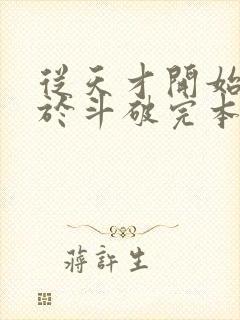 從天才開始
於斗破完本
蔣許生